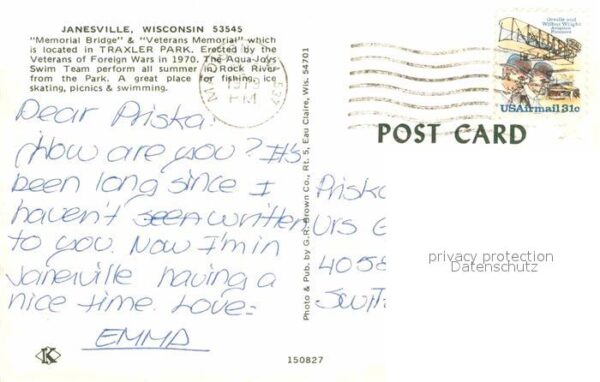 JANESVILLE, WISCONSIN 53545
"Memorial Bridge" & "Veterans Memorial" which
is located in TRAXLER PARK. Erected by the
Veterans of Foreign Wars in 1970. The Aqua-Jays
Swim Team perform all summer in Rock River
from the Park. A great place for fishing, ice
skating, picnics & swimming.
1979
PM
Dear Priska!
How are you? It's
been long since I
haven't seen written
to you. Now I'm in
Janesville having a
nice time. Love-
EMMA
K
150827
Photo & Pub. by G.R. Brown Co., Rt. 5, Eau Claire, Wis. 54701
Orville and
Wilbur Wright
Aviation
Pioneers
USAirmail 31c
POST CARD
Priska
Urs
4058
privacy protection
Datenschutz